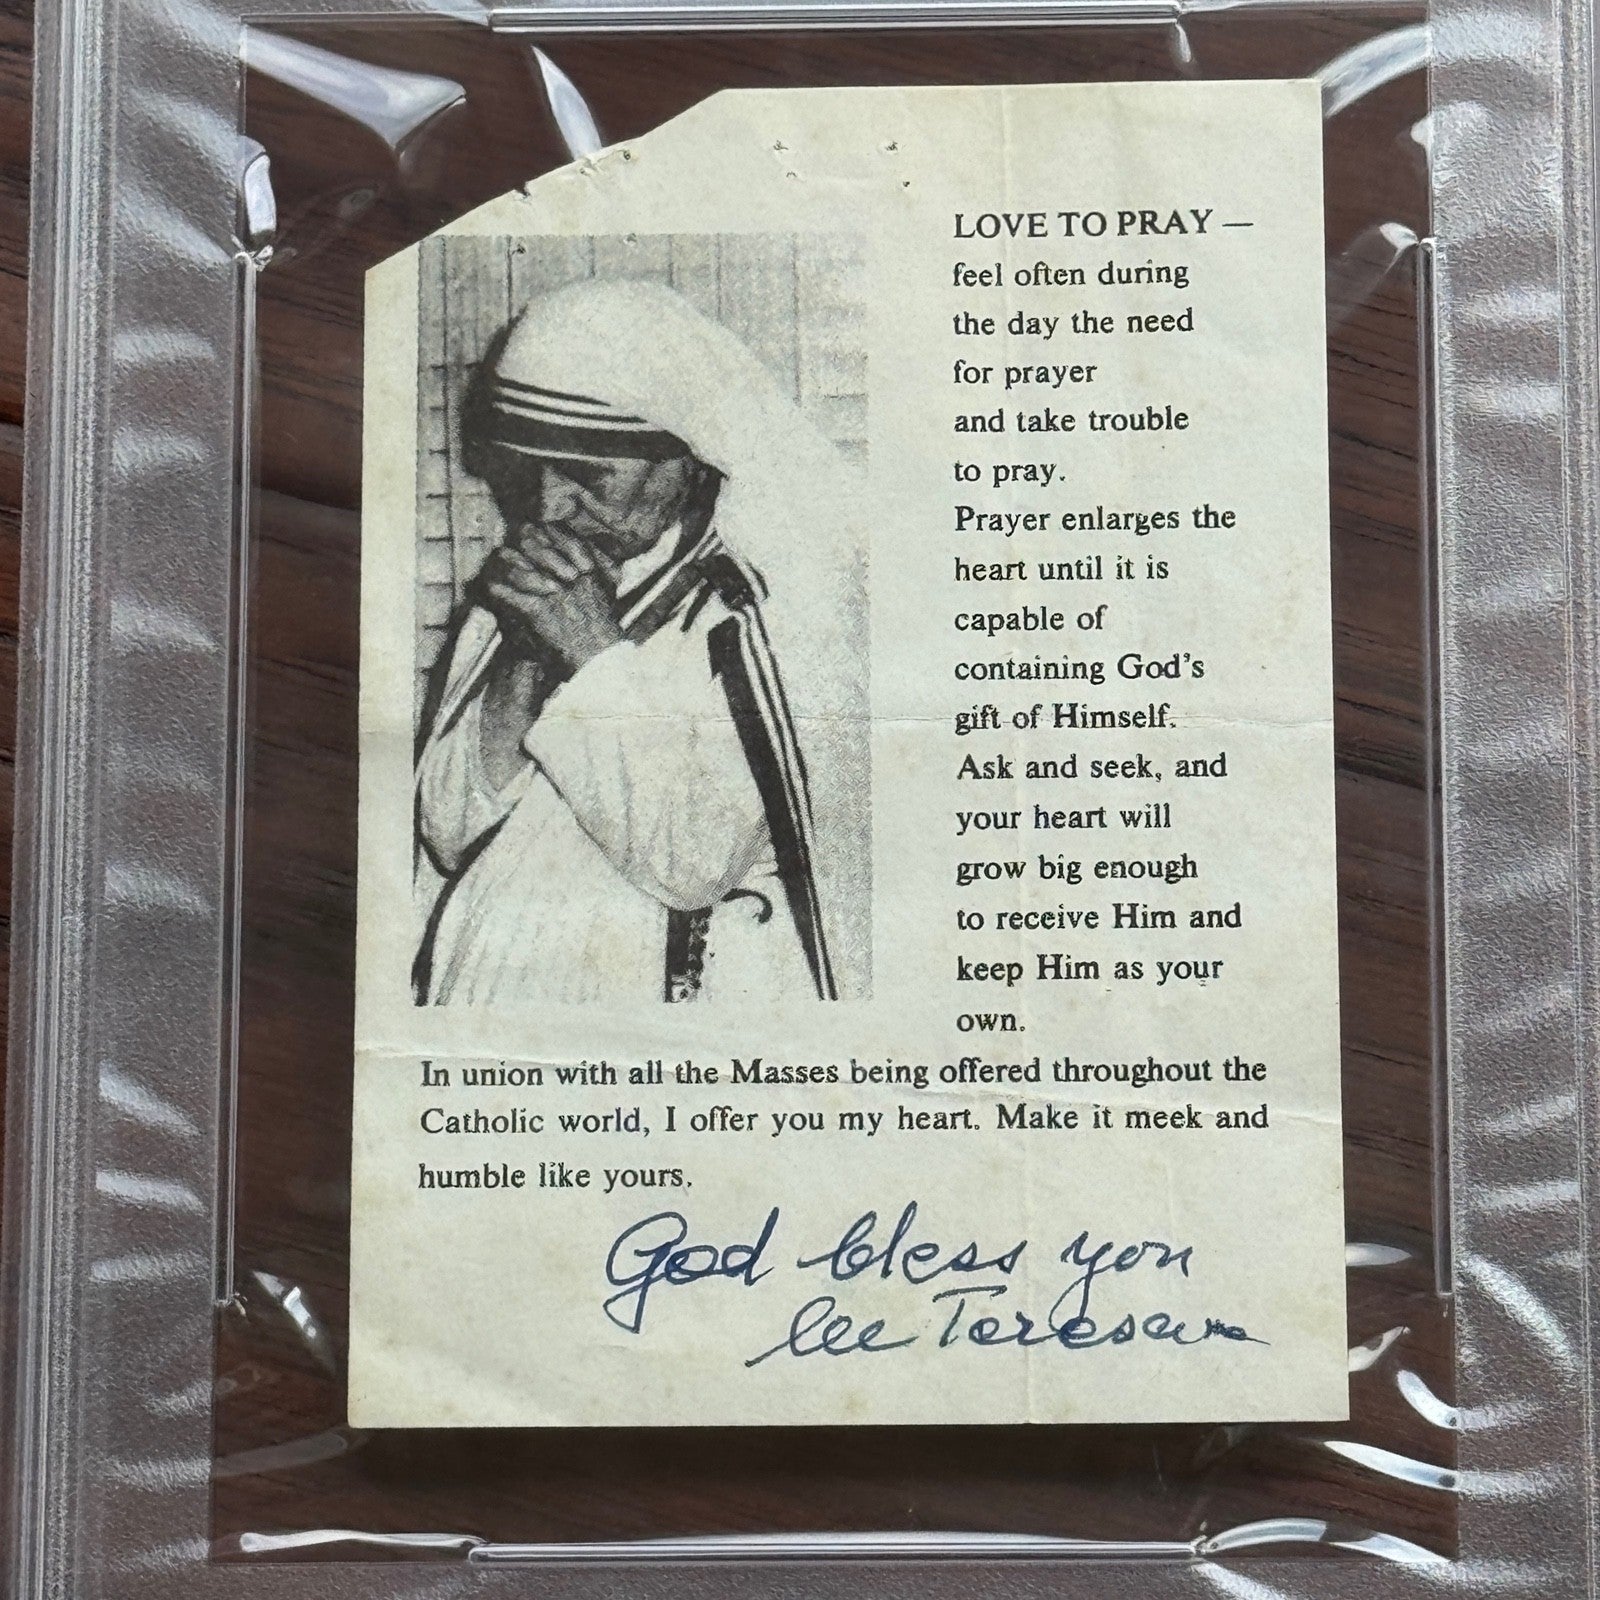 LOVE TO PRAY —
feel often during
the day the need
for prayer
and take trouble
to pray.
Prayer enlarges the
heart until it is
capable of
containing God's
gift of Himself.
Ask and seek, and
your heart will
grow big enough
to receive Him and
keep Him as your
own.
In union with all the Masses being offered throughout the
Catholic world, I offer you my heart. Make it meek and
humble like yours.
God bless you
lee Teresa mc